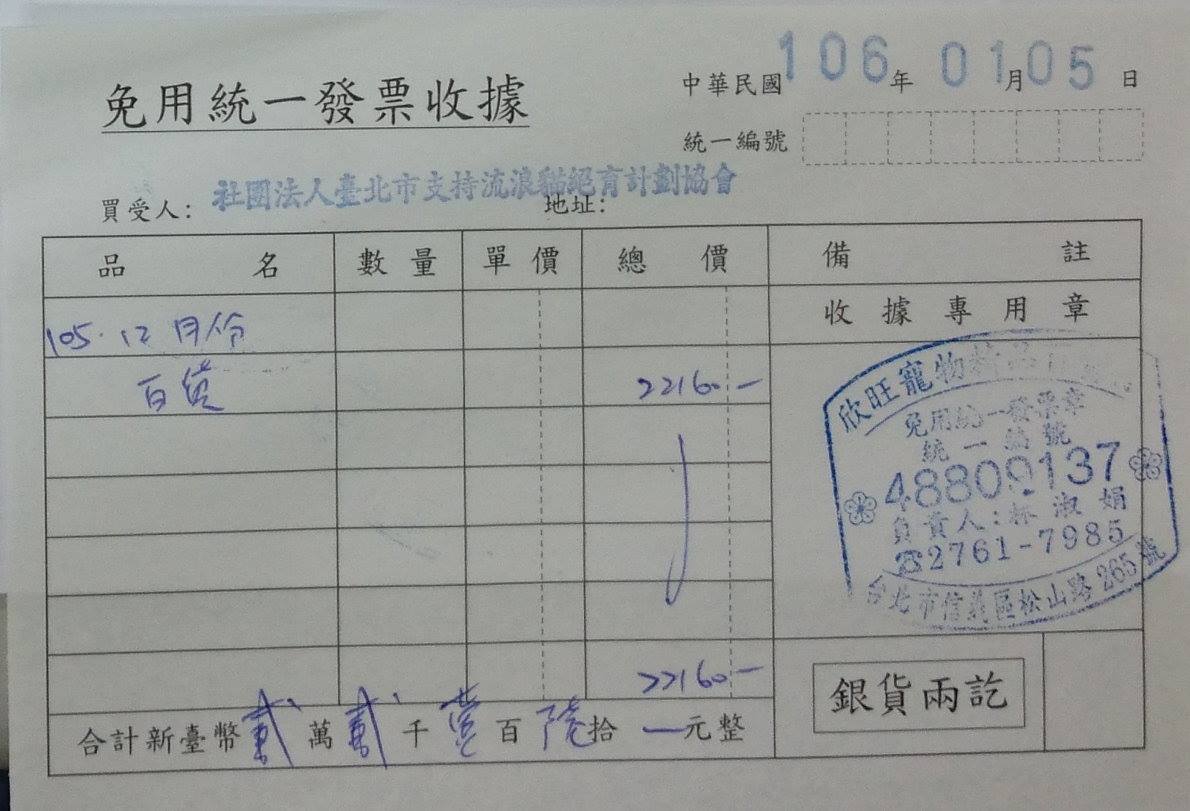 免用統一發票收據
中華民國106年01月05日
統一編號
買受人：社團法人臺北市支持流浪貓絕育計劃協會 地址：
品名 數量 單價 總價 備註
收據專用章
105.12月份
百貨 22160.—
欣旺寵物精品
免用統一發票章
統一編號
48809137
負責人：林淑娟
☎2761-7985
台北市信義區松山路265號
22160—
合計新臺幣貳萬貳千壹百陸拾—元整
銀貨兩訖